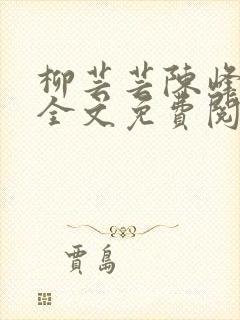 柳芸芸陈峰
全文免費閱
賈島